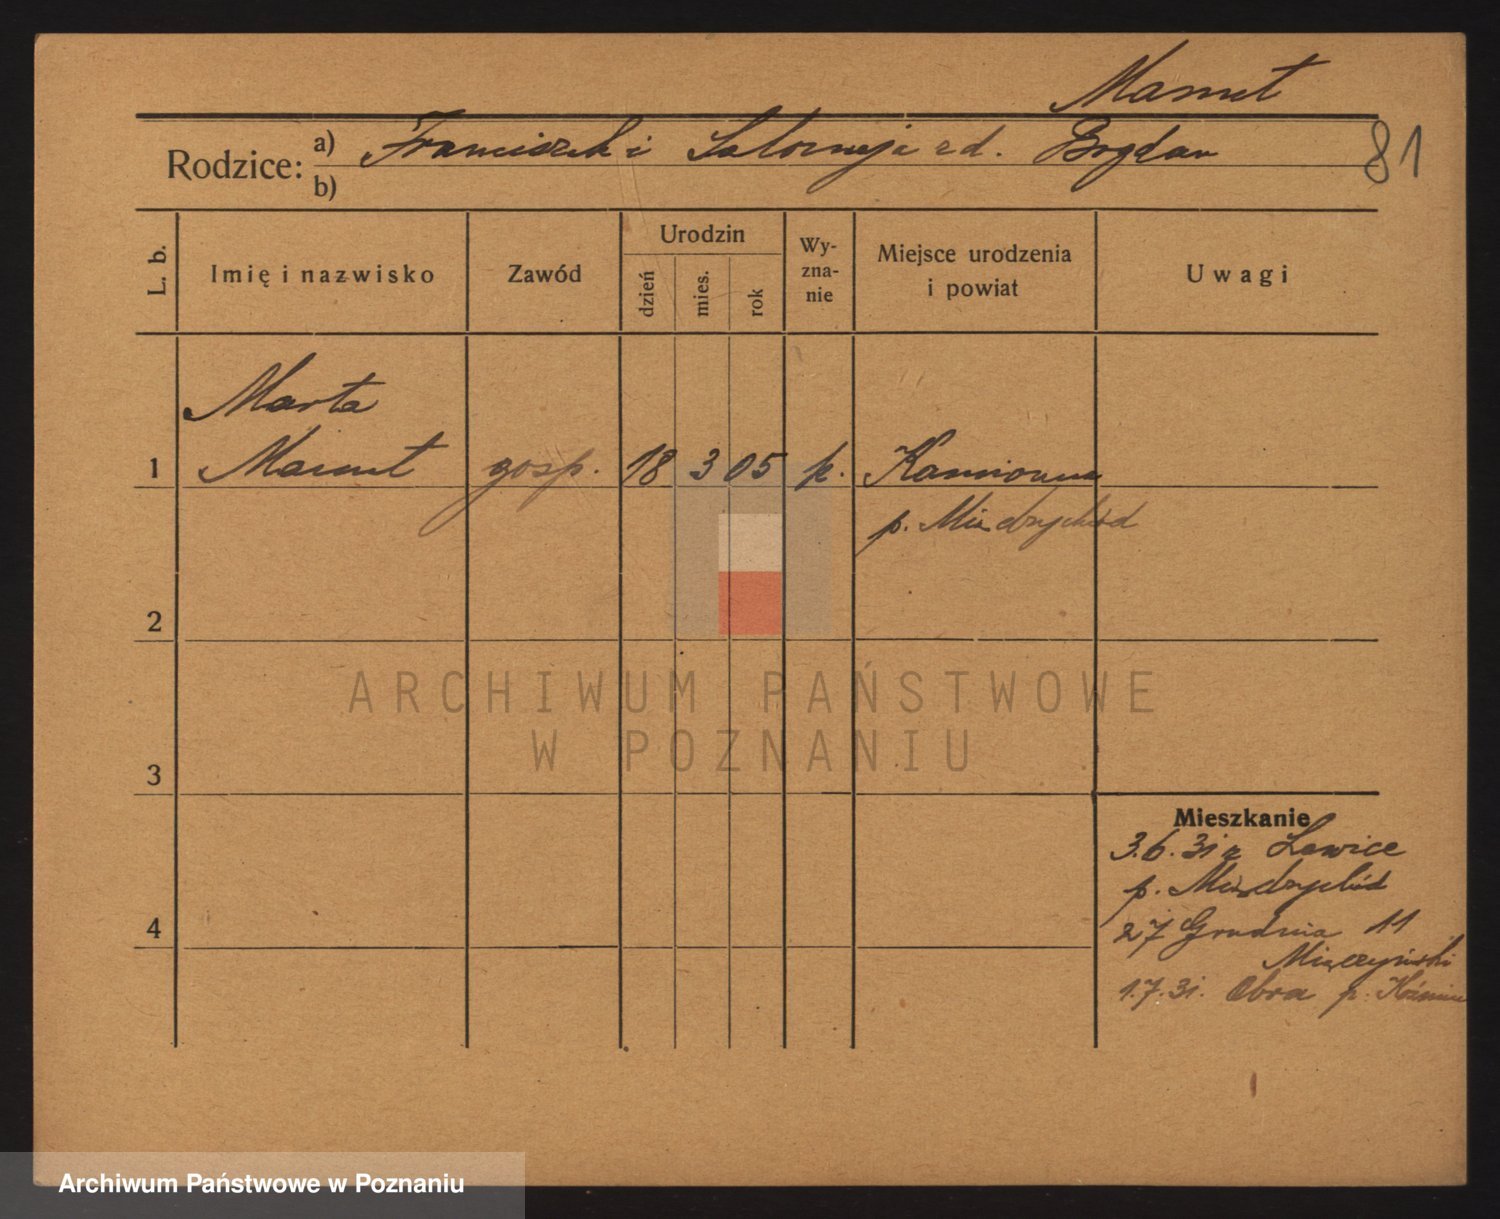 Mamet
Rodzice: a) Franciszek i Salomeja z d. Bogdan
81
b)
L. b.
Imię i nazwisko
Zawód
Urodzin
dzień
mies.
rok
Wy-
zna-
nie
Miejsce urodzenia
i powiat
Uwagi
Marta
1 Mamet gosp. 18 3 05 k. Kamionna
p. Międzychód
2
3
4
Mieszkanie
3.6.31 z Lowice
p. Międzychód
27 Grudnia 11
1.7.31. Obra p.
ARCHIWUM PAŃSTWOWE
W POZNANIU
Archiwum Państwowe w Poznaniu